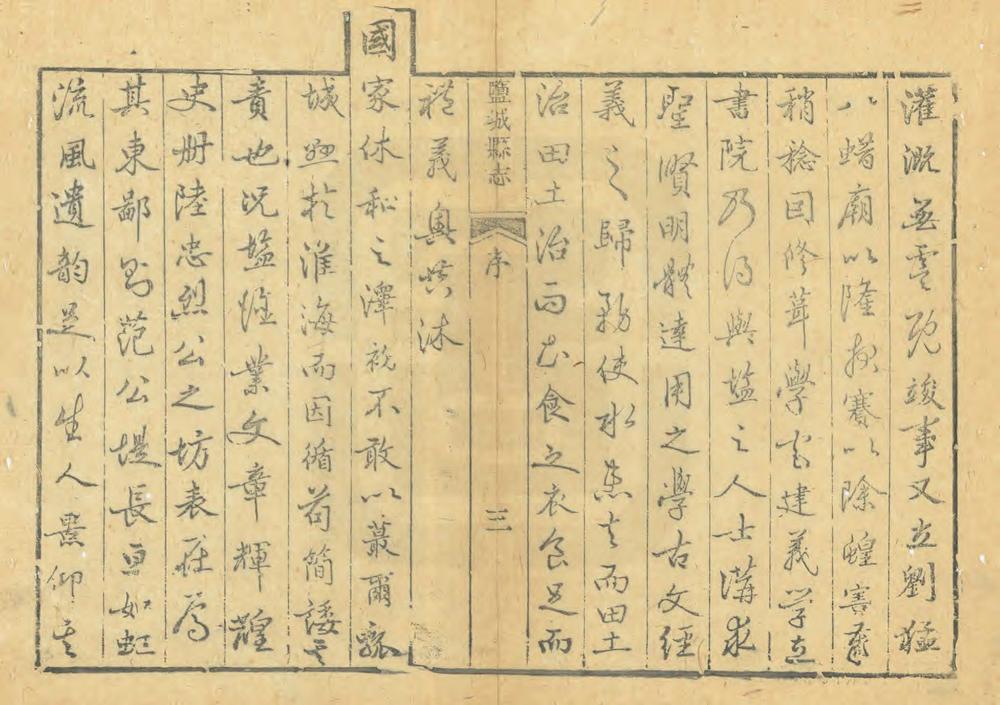 灌溉無虞既竣事又立劉猛
八蜡廟以隆报賽以除蝗害歲
稍稔因修葺學宮建義学立
書院乃得與塩之人士講求
聖賢明體達用之學古文經
義之歸務使水患去而田土
治田土治而衣食足衣食足而
禮義興共沐
國家休和之澤祝不敢以蕞爾孤
城避於淮海而因循苟簡諉其
責也况塩雖業文章輝煌
史册陸忠烈公之坊表在焉
其東鄙則范公堤長亘如虹
流風遺韵足以生人景仰其
鹽城縣志
序
三